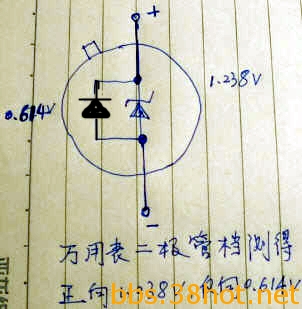 +
1.238V
0.614V
-
万用表二极管档测得
正向1.238 反向0.614V
bbs.38hot.net